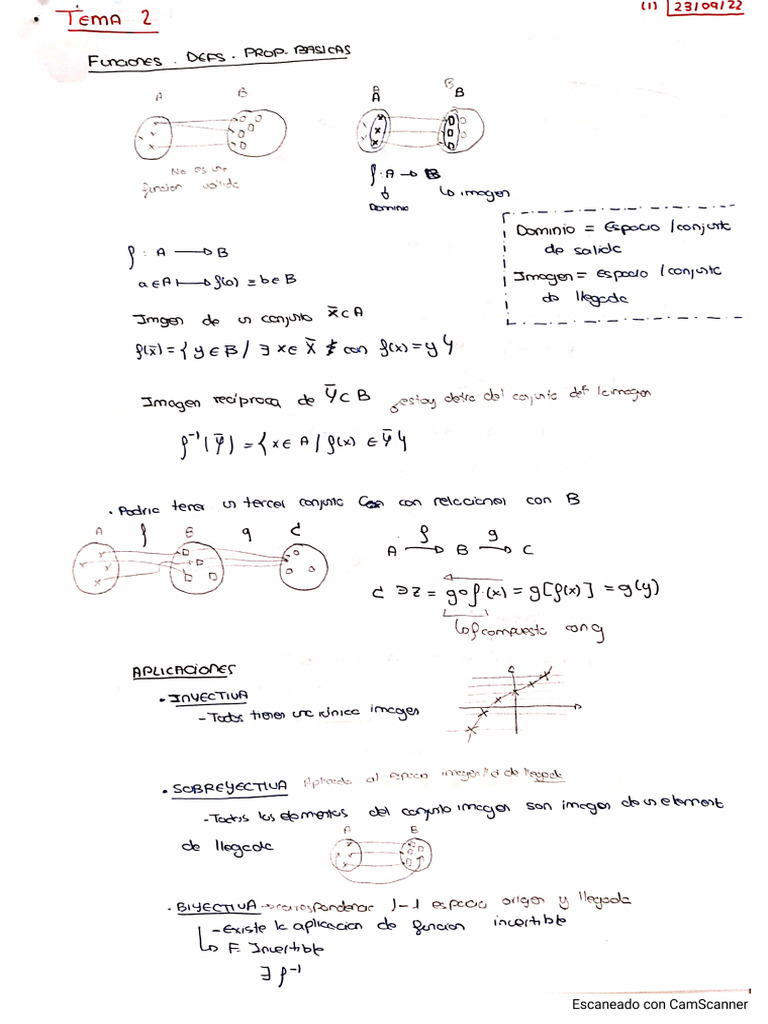 (1) 23/09/22
• TEMA 2
FUNCIONES. DEFS. PROP. BASICAS
A B
A B
A B
No es una
funcion valida
f: A → B
Dominio
↳ imagen
Dominio = Espacio /conjunto
de salida
Imagen = espacio /conjunto
de llegada
f: A → B
a ∈ A ↦ f(a) = b ∈ B
Imagen de un conjunto X̄ ⊂ A
f(x̄) = { y ∈ B / ∃ x ∈ X̄ con f(x) = y }
Imagen reciproca de Ȳ ⊂ B
estoy detro del conjunto de la imagen
f⁻¹(Ȳ) = { x ∈ A / f(x) ∈ Ȳ }
• Podria tener un tercer conjunto C con relaciones con B
A f B g C
A →f B →g C
C ∋ z = g∘f (x) = g[f(x)] = g(y)
↳ f compuesta con g
APLICACIONES
• INYECTIVA
- Todos tienen una única imagen
• SOBREYECTIVA Aplicada al espacio imagen / d de llegada
- Todos los elementos del conjunto imagen son imagen de un element
de llegada
A B
• BIYECTIVA → correspondencia 1-1 espacio origen y llegada
- Existe la aplicacion de funcion invertible
↳ F. Invertible
∃ f⁻¹
Escaneado con CamScanner